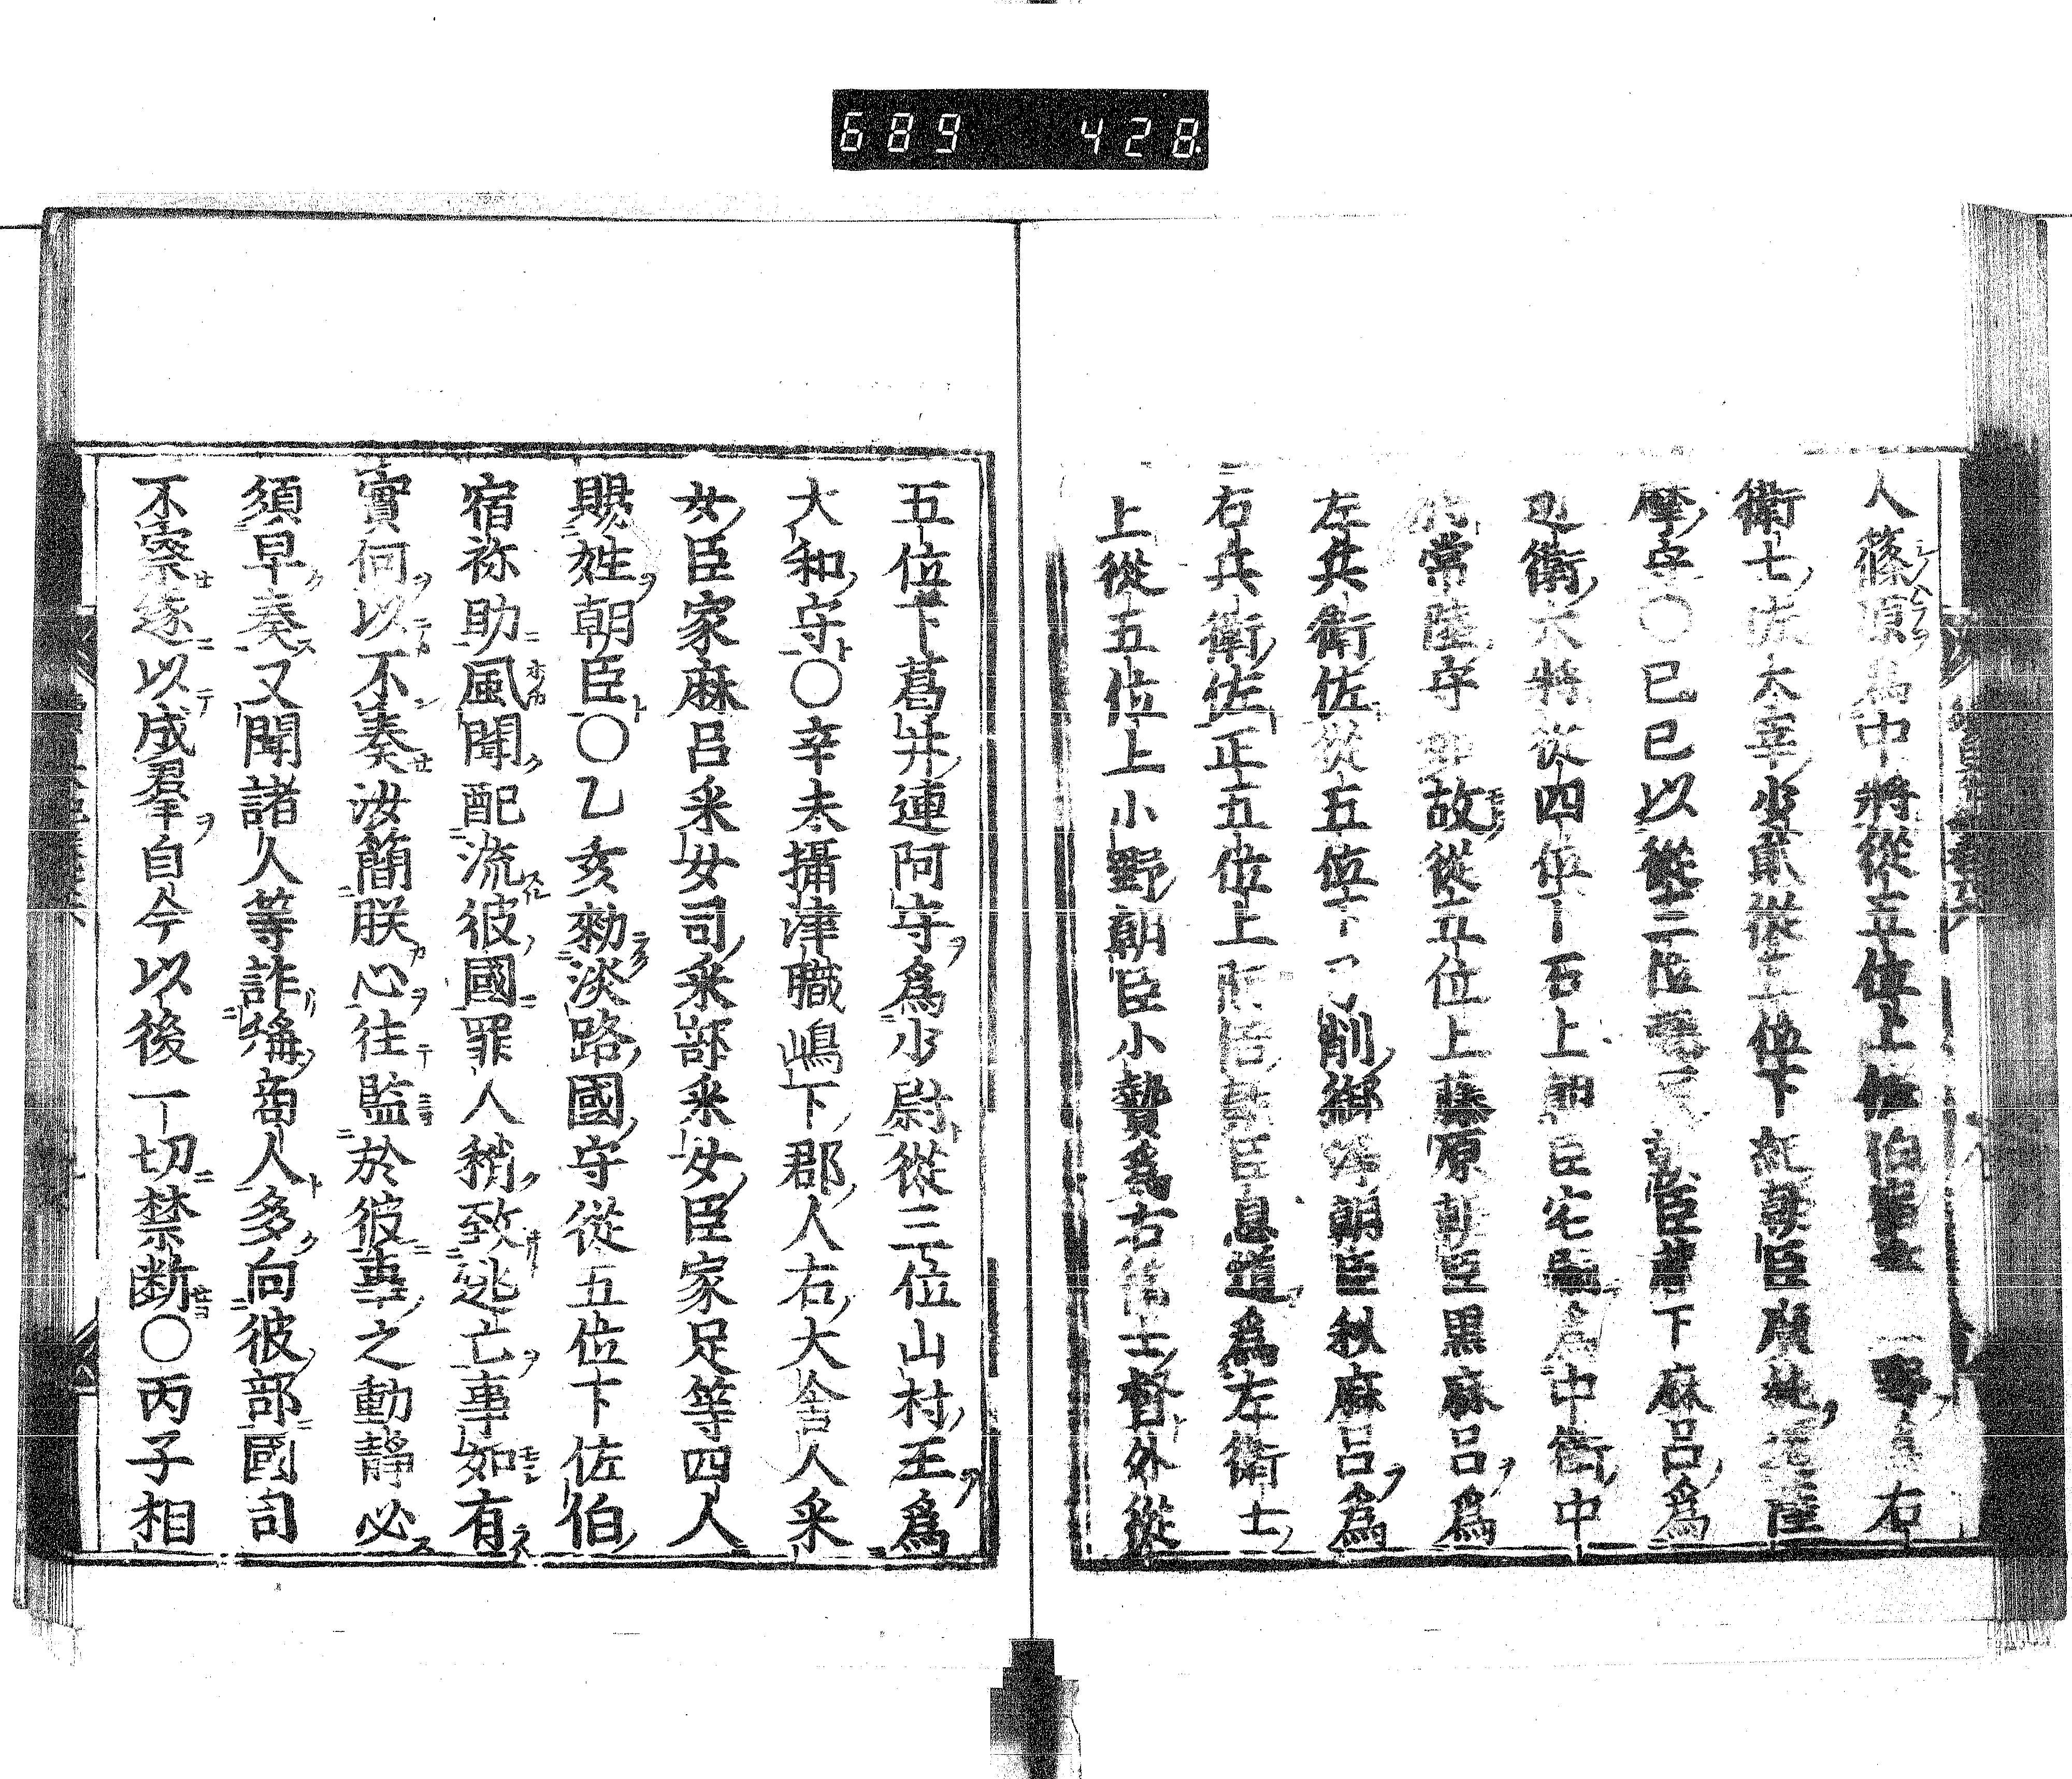 689 428
人篠原爲中將從五位上佐伯 野爲右
衛士佐太宰少貳從五位下紀朝臣廣純 薩
摩守〇己巳以從三位 原朝臣 下麻呂爲
近衛大將從四位下石上朝臣宅嗣爲中衛中
將常陸守 故從五位上藤原朝臣黑麻呂爲
左兵衛佐從五位下弓削御 朝臣秋麻呂爲
右兵衛佐正五位上 朝臣息道爲左衛士
上從五位上小野朝臣小贄爲右衛士督外從
五位下葛井連阿守爲少尉從三位山村王爲
大和守〇辛未攝津職嶋下郡人右大舍人采
女臣家麻呂采女司采部采女臣家足等四人
賜姓朝臣〇乙亥勑淡路國守從五位下佐伯
宿祢助風聞配流彼國罪人稍致逃亡事如有
實何以不奏汝簡朕心往監於彼事之動靜必
須早奏又聞諸人等詐稱商人多向彼部國司
不察遂以成羣自今以後一切禁断〇丙子相